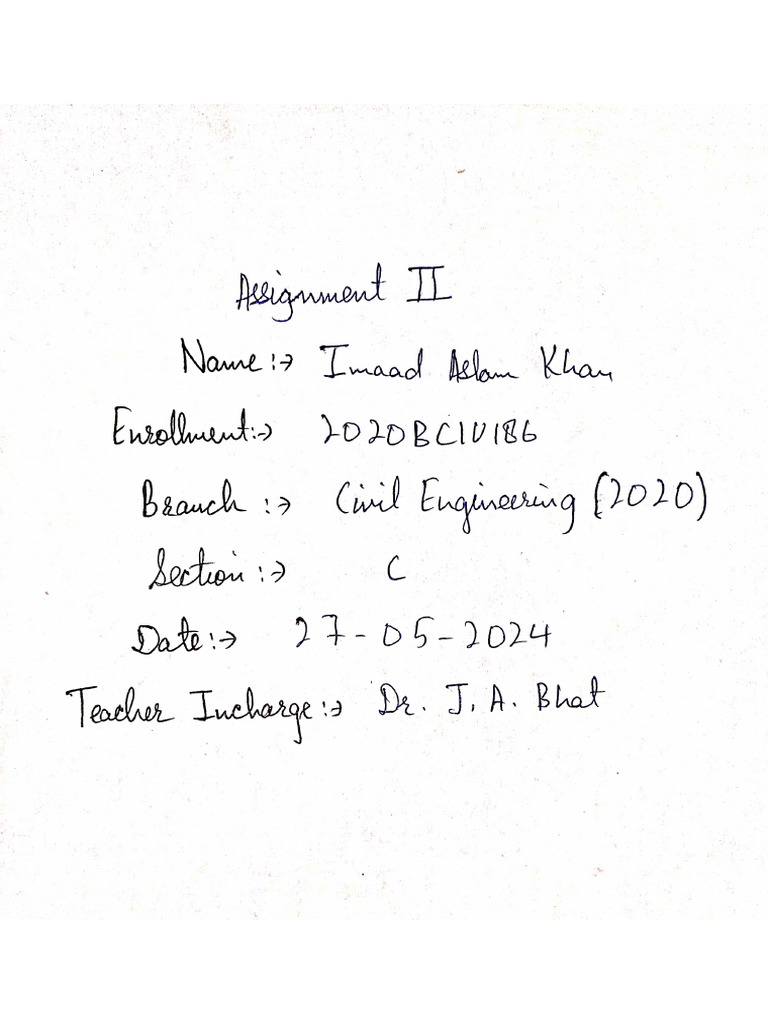 Assignment II
Name:→ Imaad Aslam Khan
Enrollment:→ 2020BCIV186
Branch :→ Civil Engineering (2020)
Section :→ C
Date:→ 27-05-2024
Teacher Incharge:→ Dr. J. A. Bhat